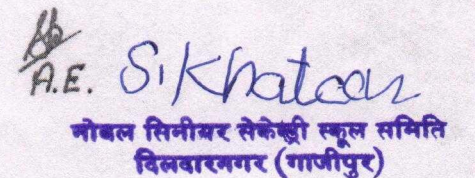 A.E. S. Khatoon
नोबल सिनीयर सेकेण्ड्री स्कूल समिति
दिलदारनगर (गाजीपुर)